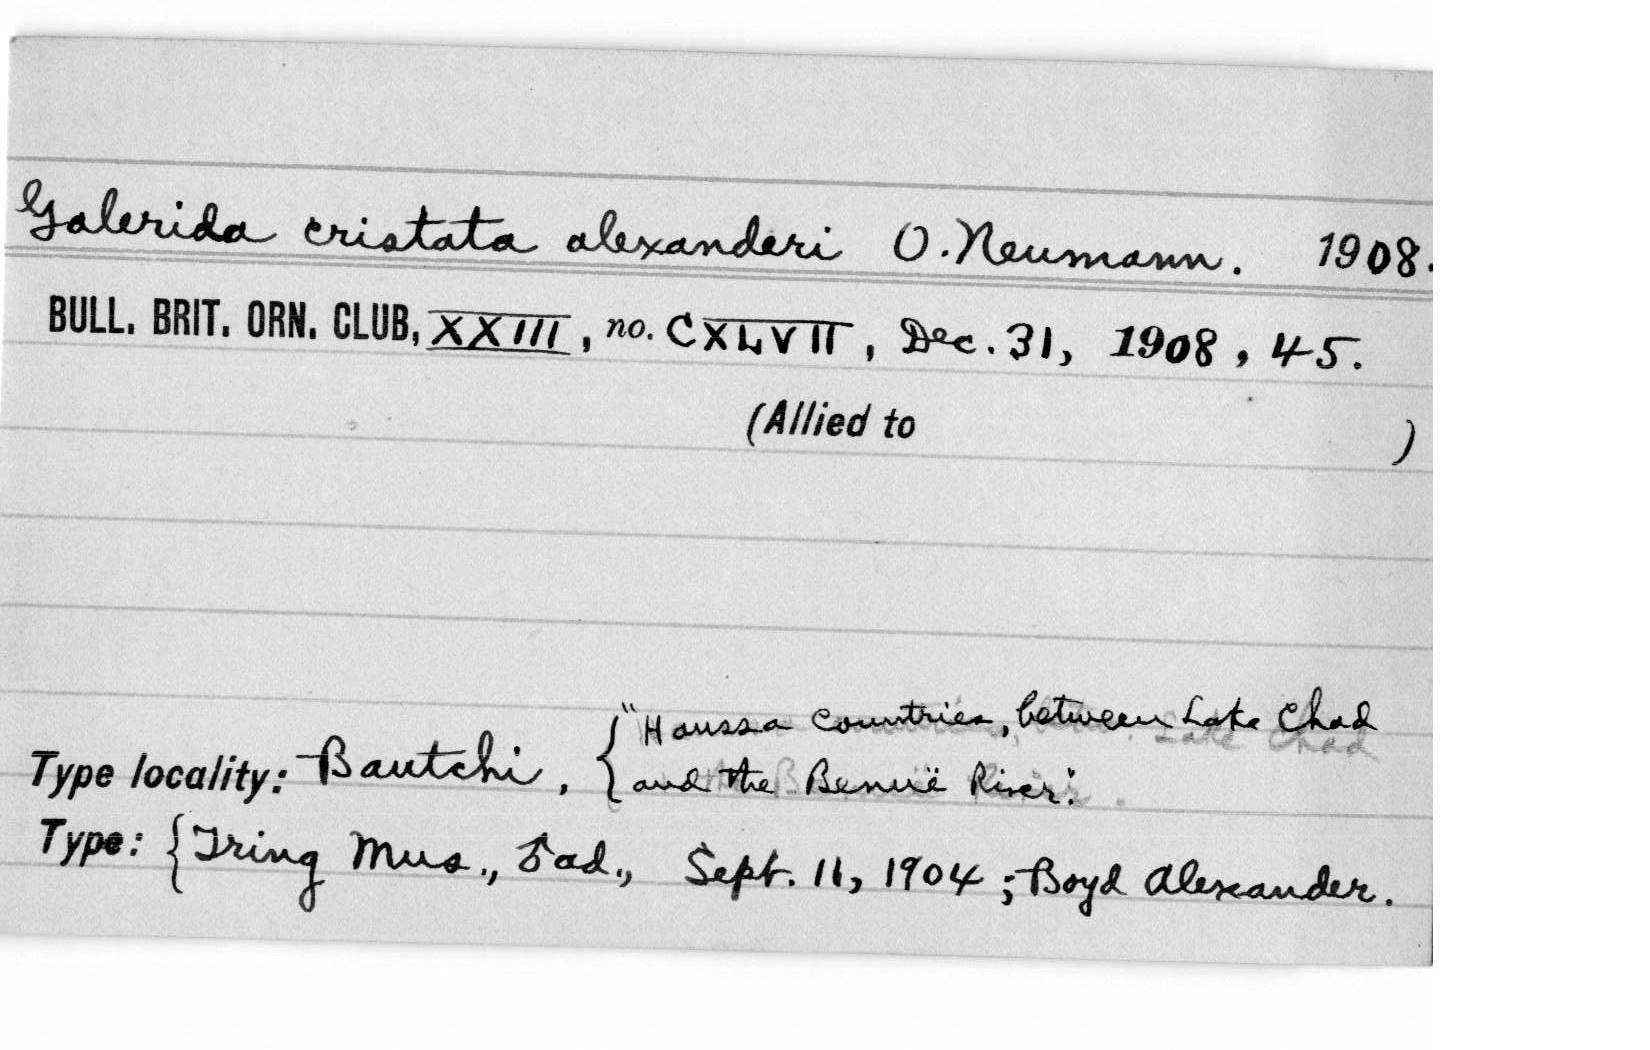 Galerida cristata alexanderi O. Neumann. 1908.
BULL. BRIT. ORN. CLUB, XXIII, no. CXLVII, Dec. 31, 1908, 45.
(Allied to )
"Haussa countries, between Lake Chad
Type locality: Bautchi, { and the Benuë River".
Type: { Tring Mus., ♂ ad., Sept. 11, 1904; Boyd Alexander.